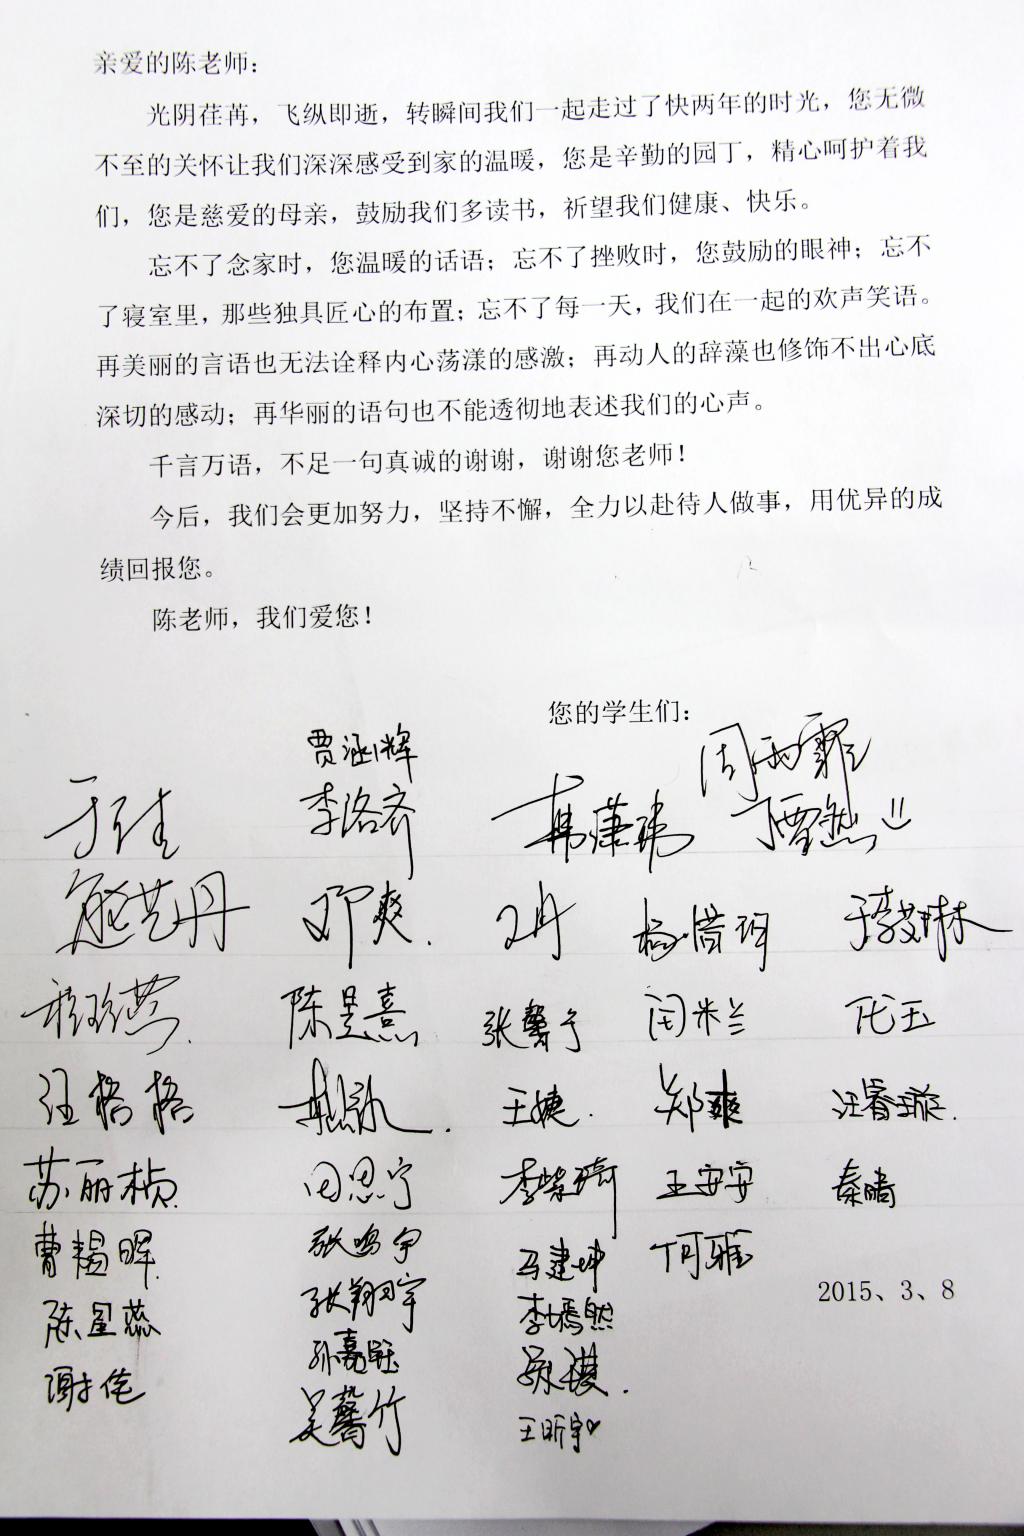 亲爱的陈老师：
光阴荏苒，飞纵即逝，转瞬间我们一起走过了快两年的时光，您无微
不至的关怀让我们深深感受到家的温暖，您是辛勤的园丁，精心呵护着我
们，您是慈爱的母亲，鼓励我们多读书，祈望我们健康、快乐。
忘不了念家时，您温暖的话语；忘不了挫败时，您鼓励的眼神；忘不
了寝室里，那些独具匠心的布置；忘不了每一天，我们在一起的欢声笑语。
再美丽的言语也无法诠释内心荡漾的感激；再动人的辞藻也修饰不出心底
深切的感动；再华丽的语句也不能透彻地表述我们的心声。
千言万语，不足一句真诚的谢谢，谢谢您老师！
今后，我们会更加努力，坚持不懈，全力以赴待人做事，用优异的成
绩回报您。
陈老师，我们爱您！
您的学生们：
贾涵辉 周雨霏
于佳 李洛齐
邓爽. 杨惜珥
陈昱熹 张馨予 闫米兰
汪格格 王婕. 郑爽 汪睿璇.
苏丽桢 田思宁 李紫琦 王安安 秦晴
张鸣宇 马建坤 何雅
陈星蕊 张翔宇 李嫣然
2015、3、8
谢佳 孙嘉钰
吴馨竹 王昕宇